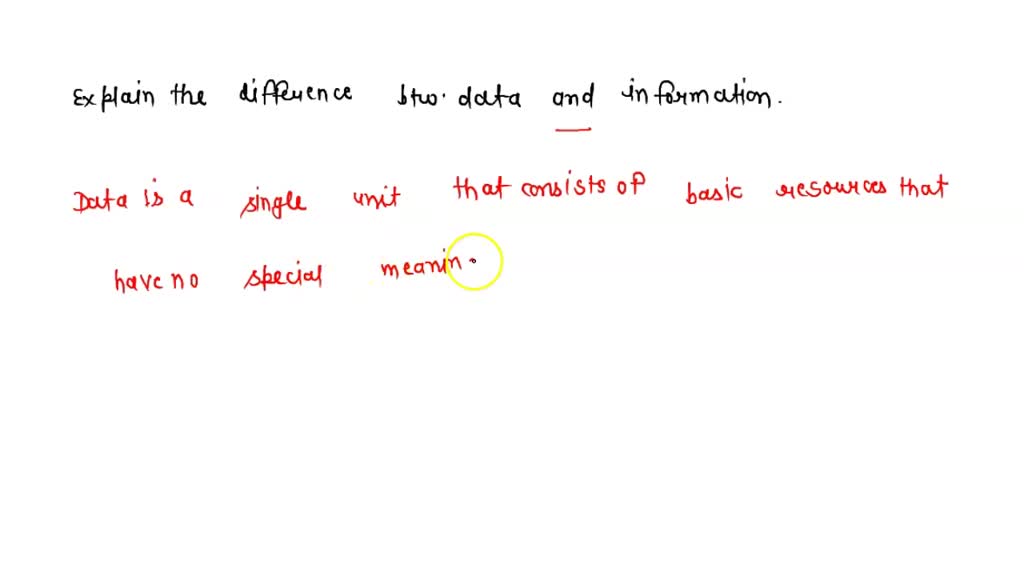 Explain the difference btw. data and information.
Data is a single unit that consists of basic resources that
have no special meanin